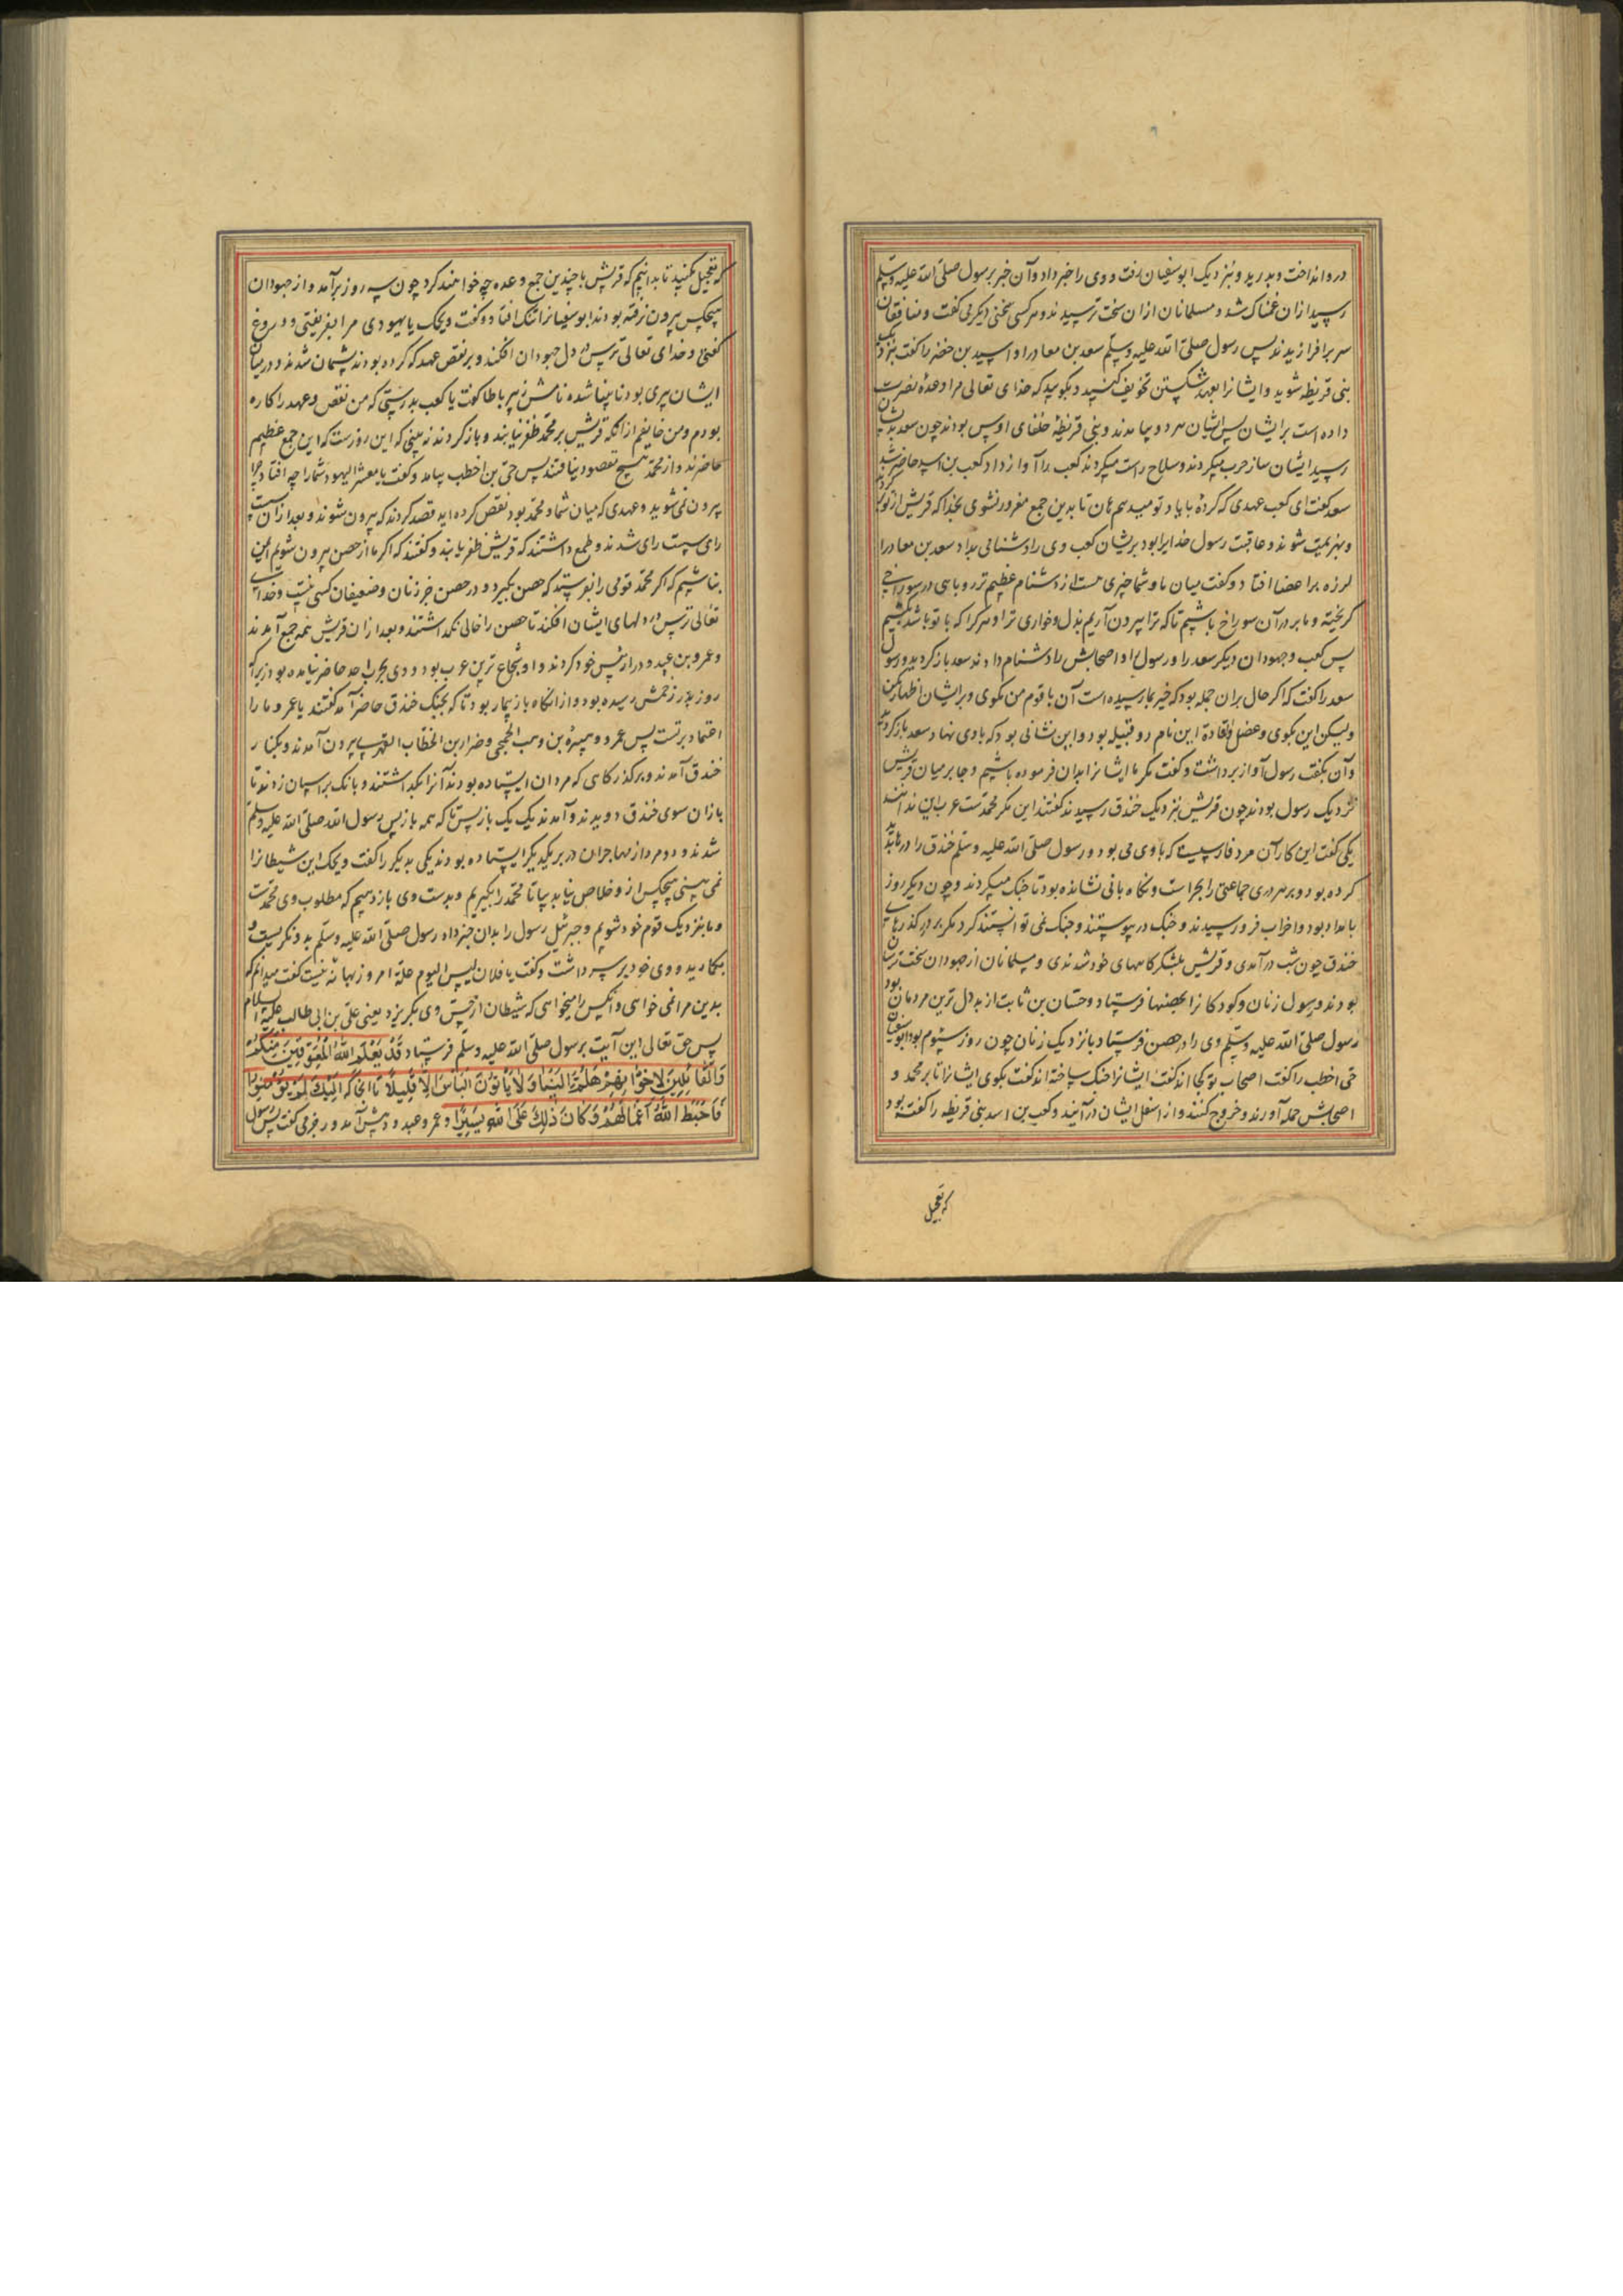 در وانداخت و بدرید و بنزدیک ابوسفیان رفت و وی را خبر داد و آن خبر برسول صلی الله علیه وسلم
رسید ازان غمناک شد و مسلمانان ازان سخت ترسیدند و هر کسی سخنی دیگر می گفت و منافقان
سر برافرازیدند پس رسول صلی الله علیه وسلم سعد بن معاذ را و اسید بن حضیر را گفت بنزدیک
بنی قریظه شوید و ایشانرا بعهد شکستن تخویف کنید و بگویید که خدای تعالی مرا وعده نصرت
داده است بر ایشان پس ایشان هر دو بیامدند و بنی قریظه خلفای اوس بودند چون سعد بدیشان
رسید ایشان ساز حرب میکردند و سلاح راست میکردند کعب را آواز داد کعب بن اسید حاضر شد
سعد گفت ای کعب عهدی که کردهٔ با یاد تو میدهم هان تا بدین جمع مغرور نشوی بخدا که قریش از تو
و بهزیمت شوند و عاقبت رسول خدا یرا بود بریشان کعب وی را دشنامی بداد سعد بن معاذ را
لرزه بر اعضا افتاد و گفت میان ما و شما چیزی هست از دشنام عظیم تر روباهی در سوراخی
گریخته و ما بر در آن سوراخ باشیم تا که ترا بیرون آریم بذل و خواری ترا و هر که را که با تو باشد بکشیم
پس کعب و جهودان دیگر سعد را و رسول را و اصحابش را دشنام دادند سعد باز گردید و رسول
سعد را گفت که اگر حال بران جمله بود که خبر بما رسیده است آن با قوم من مگوی و بر ایشان اظهار مکن
ولیکن این بگوی و عضل والقاده این نام دو قبیله بود و این نشانی بود که با وی نهاد سعد باز گردید
و آن بگفت رسول آواز برداشت و گفت مگر ما ایشانرا بدان فرموده باشیم و جابر میان قریش
نزدیک رسول بودند چون قریش بنزدیک خندق رسیدند گفتند این مکر محمدست عرب این ندانند
یکی گفت این کار آن مرد فارسیست که با وی می بود و رسول صلی الله علیه وسلم خندق را درها بدید
کرده بود و بر هر دری جماعتی را بحراست و نگاه بانی نشانده بود تا جنک میکردند و چون دیگر روز
بامداد بود و احزاب فرو رسیدند و جنک در پیوستند و جنک نمی توانستند کرد مگر بر در گذرهای
خندق چون شب درآمدی و قریش بلشکر کاههای خود شدندی و مسلمانان از جهودان سخت ترسان
بودند و رسول زنان و کودکانرا بحصنها فرستاد و حسان بن ثابت از بددل ترین مردمان بود
رسول صلی الله علیه وسلم وی را در حصن فرستاد با نزدیک زنان چون روز سیوم بود ابوسفیان
حی اخطب را گفت اصحاب تو کجا اند گفت ایشانرا جنک ساخته اند گفت بگوی ایشانرا تا بر محمد و
اصحابش حمله آورند و خروج کنند و از اسفل ایشان در آیند و کعب بن اسد بنی قریظه را گفته بود
که تعجیل
که تعجیل مکنید تا بدانیم که قریش با چندین جمع و عده چه خواهند کرد چون سه روز برآمد و از جهودان
هیچکس بیرون نرفته بودند ابوسفیانرا تنک افتاد و گفت ویحک یا یهودی مرا بفریفتی و دروغ
گفتی و خدای تعالی ترس در دل جهودان افکند و بر نقض عهد که کرده بودند پشیمان شدند و در میان
ایشان پیری بود نابینا شده نامش زبیر باطا گفت یا کعب بدرستی که من نقض عهد را کاره
بودم و من خایفم از آنکه قریش بر محمد ظفر نیابند و باز گردند نه بینی که این روزست که این جمع عظیم
حاضرند و از محمد هیچ مقصود نیافتند پس حی بن اخطب بیامد و گفت یا معشر الیهود شما را چه افتاد چرا
بیرون نمی شوید و عهدی که میان شما و محمد بود نقض کرده اید قصد کردند که بیرون شوند و بعد ازان
رای سست رای شدند و طمع داشتند که قریش ظفر یابند و گفتند که اگر ما از حصن بیرون شویم ایمن
نباشیم که اگر محمد قومی را بفرستد که حصن بگیرد و در حصن جز زنان و ضعیفان کسی نیست و خدای
تعالی ترس در دلهای ایشان افکند تا حصن را خالی نگذاشتند و بعد ازان قریش همه جمع آمدند
و عمرو بن عبدود را رئیس خود کردند و او شجاع ترین عرب بود و وی بحرب احد حاضر نیامده بود زیرا که
روز بدر زخمش رسیده بود و از آنگاه باز بیمار بود تا که بجنک خندق حاضر آمد گفتند یا عمرو ما را
اعتماد بر تست پس عمرو و هبیره بن وهب الجمحی و ضرار بن الخطاب الفهری بیرون آمدند و بکنار
خندق آمدند و بر گذرگاهی که مردان ایستاده بودند آنرا بگذاشتند و بانک بر اسپان زدند تا
بازان سوی خندق دویدند و آمدند یک یک باز پس تا که همه باز پس رسول الله صلی الله علیه وسلم
شدند و دو مرد از مهاجران در بر یکدیگر ایستاده بودند یکی بدیگر را گفت ویحک این شیطانرا
نمی بینی هیچکس ازو خلاص نیابد بیا تا محمد را بگیریم و بدست وی باز دهیم که مطلوب وی محمدست
و ما بنزدیک قوم خود شویم و جبرئیل رسول را بدان خبر داد رسول صلی الله علیه وسلم بدو نگریست و
بخندید و وی خود بر سر داشت و گفت یا فلان لیس الیوم علة امروز بهانه نیست گفت میدانم که
بدین مرا نمی خواهی و آنکس را میخواهی که شیطان از حس وی بگریزد یعنی علی بن ابی طالب علیه السلام
پس حق تعالی این آیت برسول صلی الله علیه وسلم فرستاد قَدْ یَعْلَمُ اللهُ الْمُعَوِّقِینَ مِنْکُمْ
وَالْقَائِلِینَ لِاِخْوَانِهِمْ هَلُمَّ اِلَیْنَا وَلَا یَأْتُونَ الْبَأْسَ اِلَّا قَلِیلًا تا انجا که اُولَئِکَ لَمْ یُؤْمِنُوا
فَاَحْبَطَ اللهُ اَعْمَالَهُمْ وَکَانَ ذَلِکَ عَلَی اللهِ یَسِیرًا و عمرو عبدود پیش آمد و رجز می گفت پس رسول